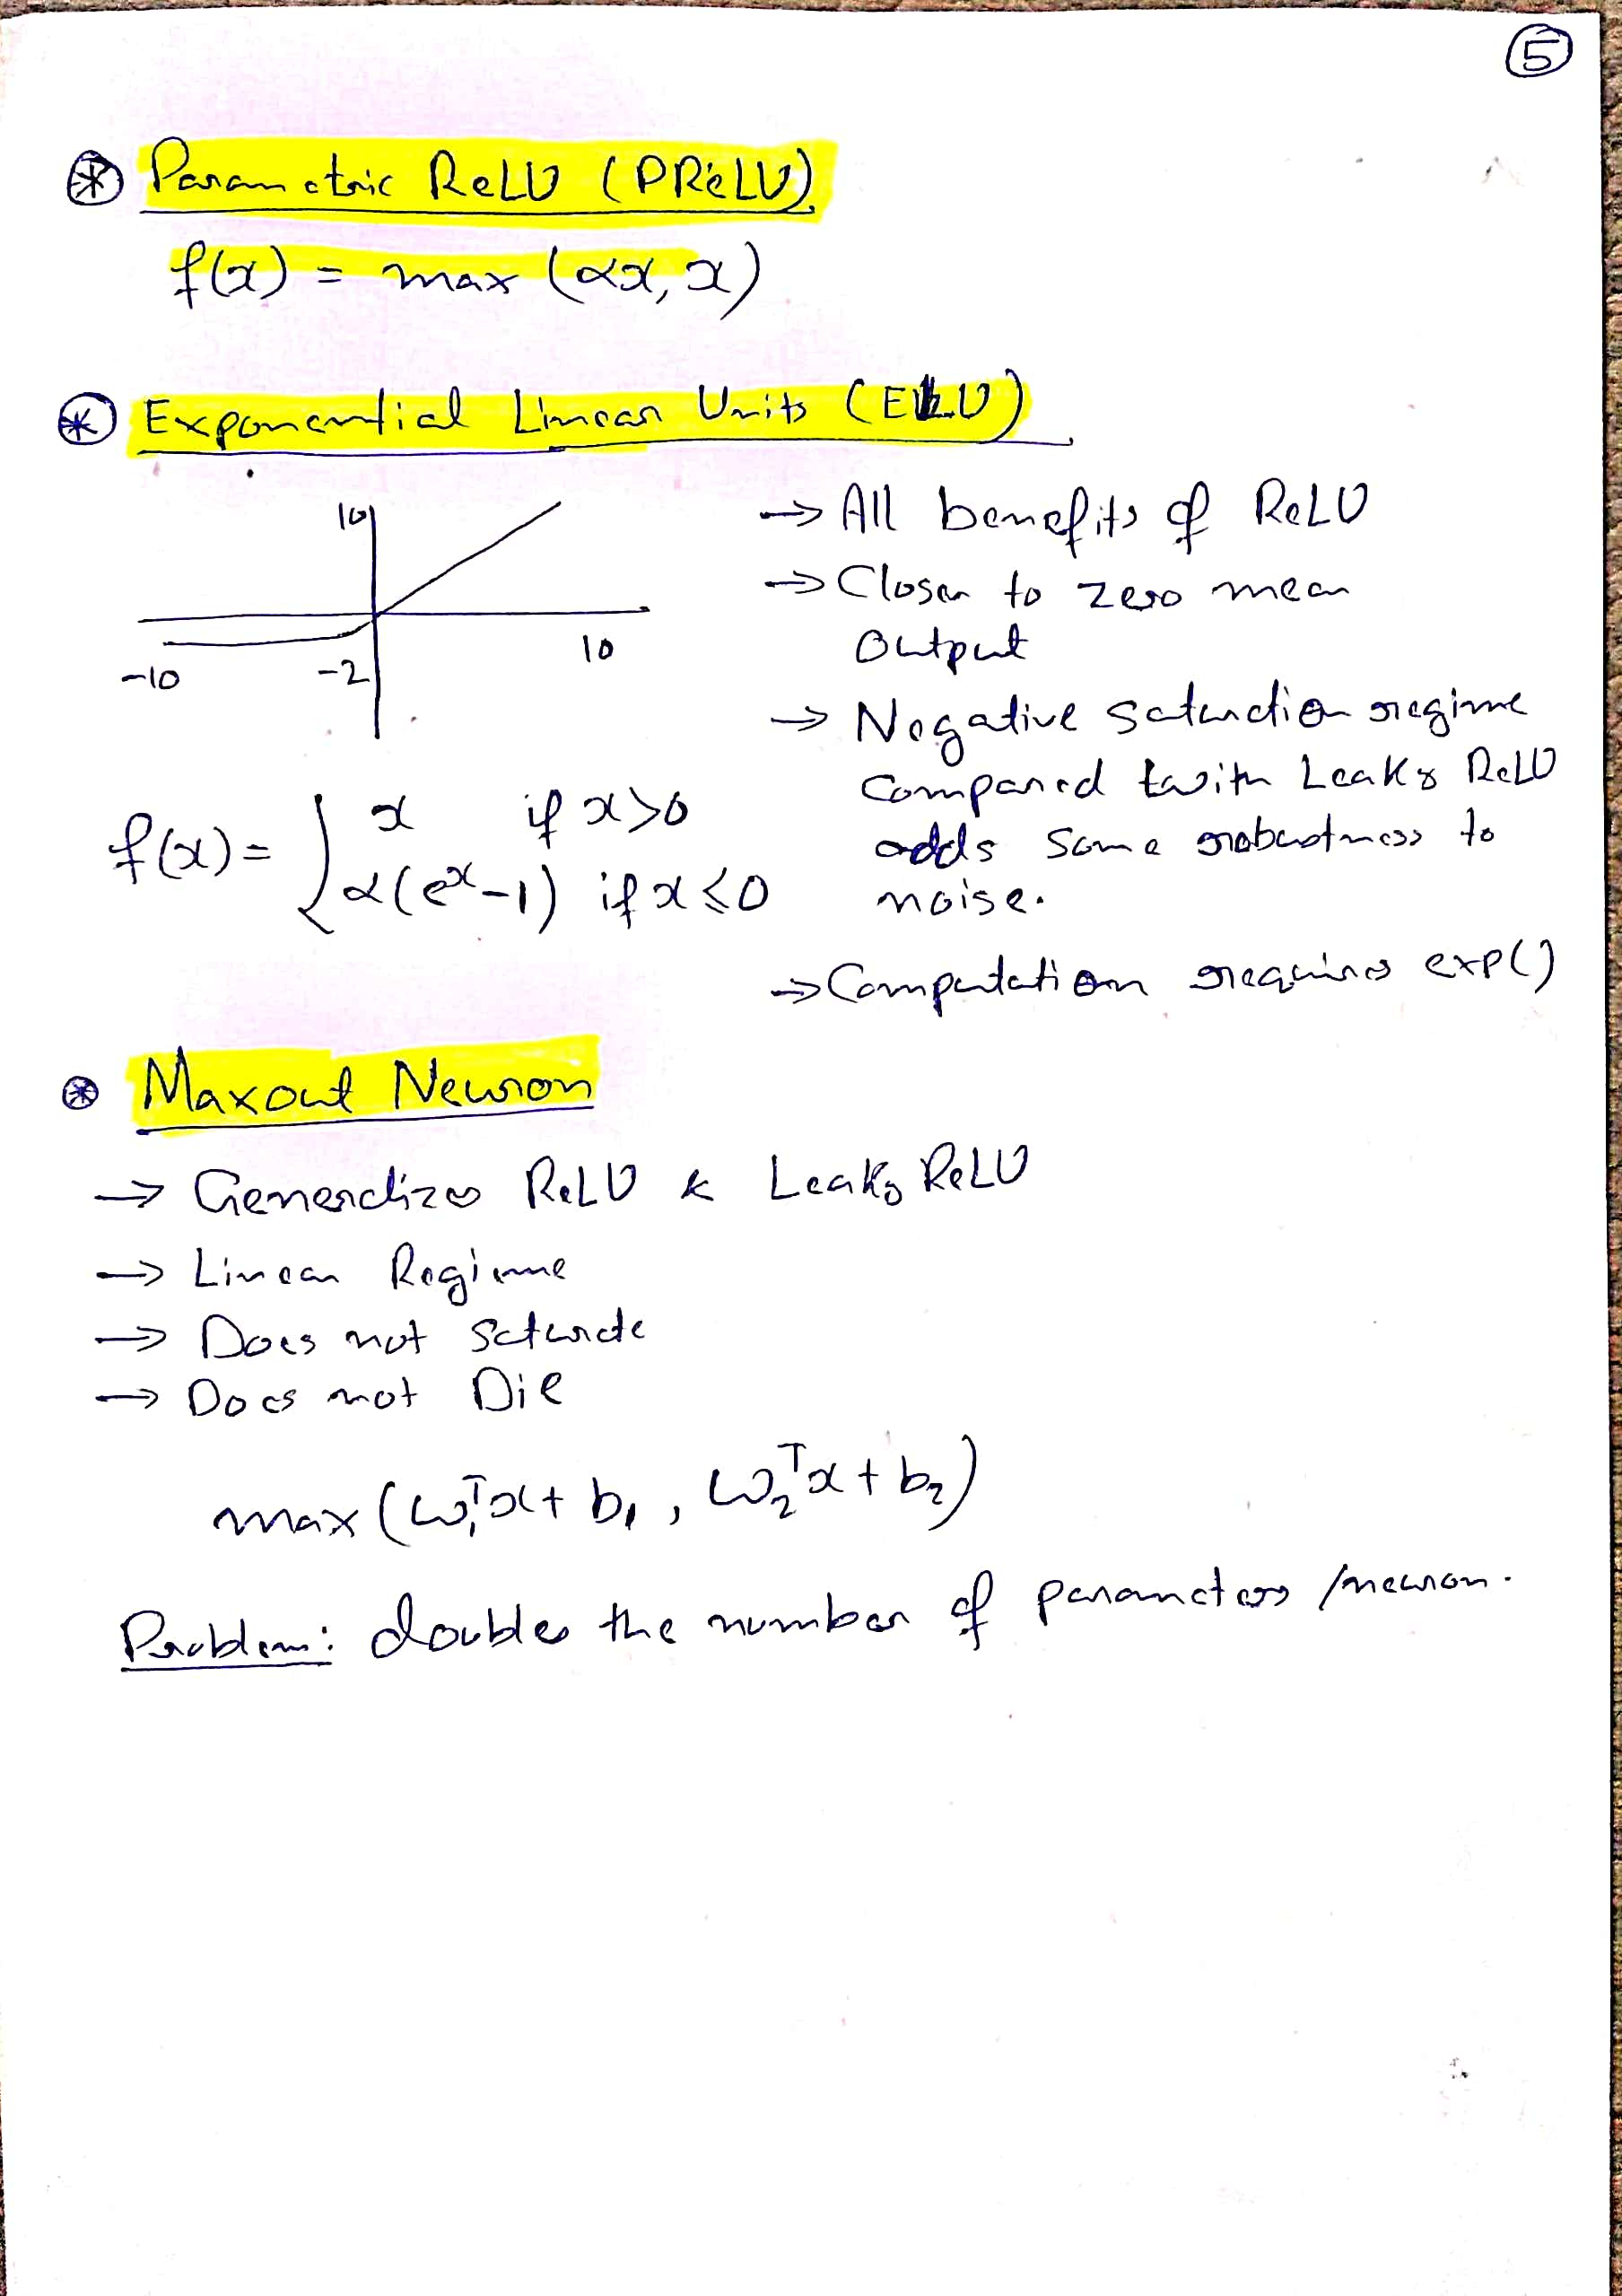 5
Parametric ReLU (PReLU)
f(x) = max (αx, x)
Exponential Linear Units (ELU)
10
10
-10
-2
f(x) = { x if x>0
α(eˣ-1) if x≤0
→ All benefits of ReLU
→ Closer to zero mean
Output
→ Negative saturation regime
Compared with Leaky ReLU
adds some robustness to
noise.
→ Computation requires exp()
Maxout Neuron
→ Generalizes ReLU & Leaky ReLU
→ Linear Regime
→ Does not Saturate
→ Does not Die
max (w₁ᵀx + b₁, w₂ᵀx + b₂)
Problem: doubles the number of parameters /neuron.